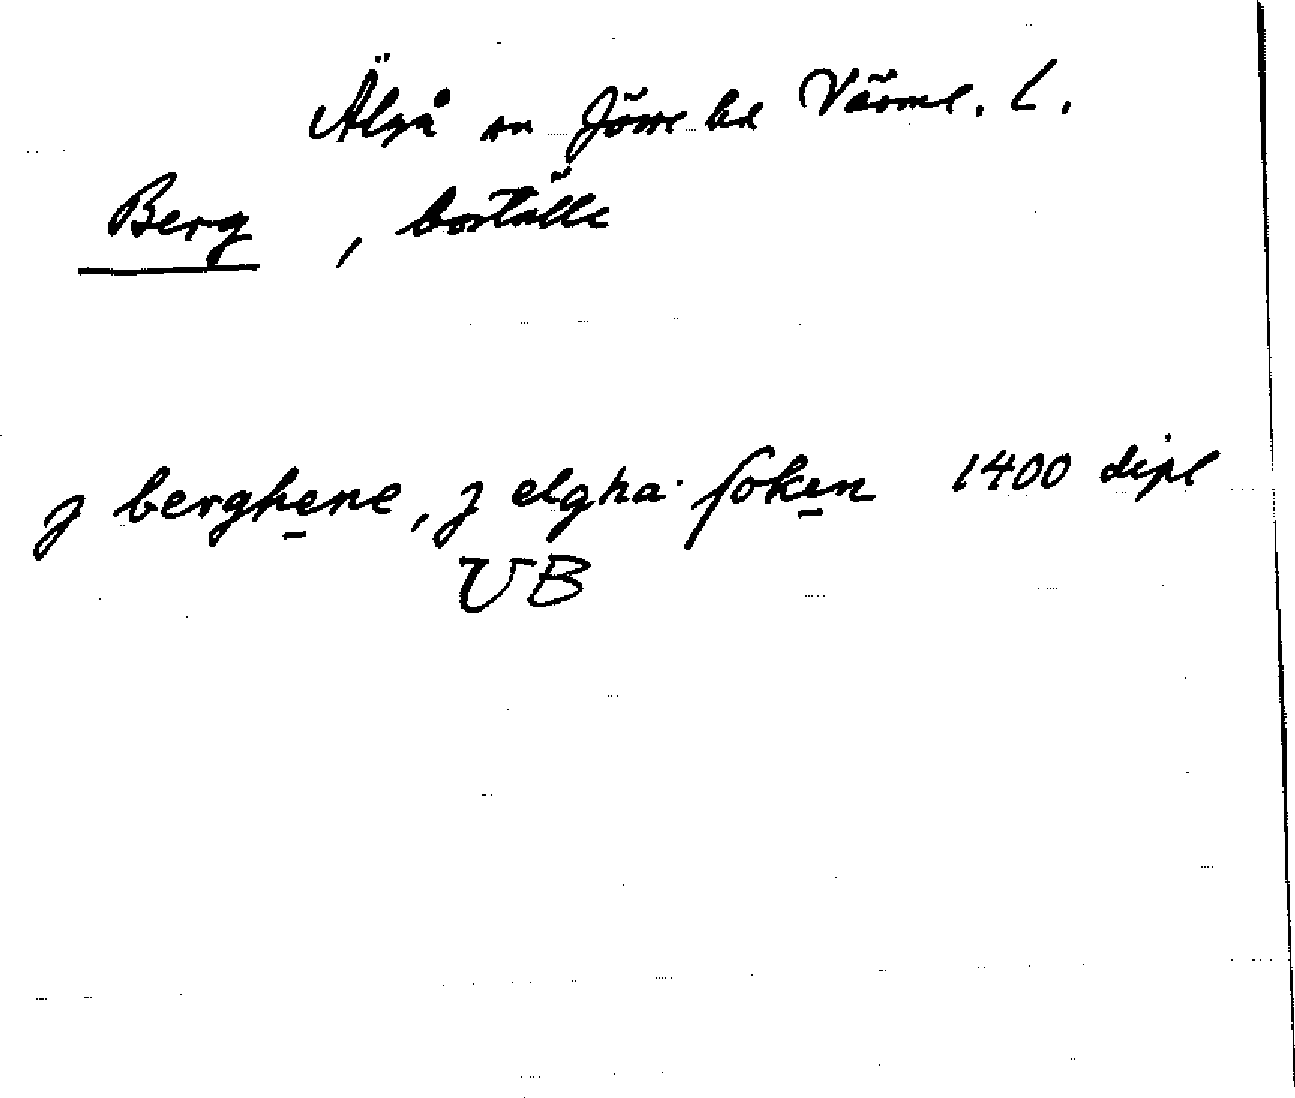 Älgå sn Jösse hd Värml. L.
Berg, boställe
j berghene, j elgha soken 1400 dipl
UB